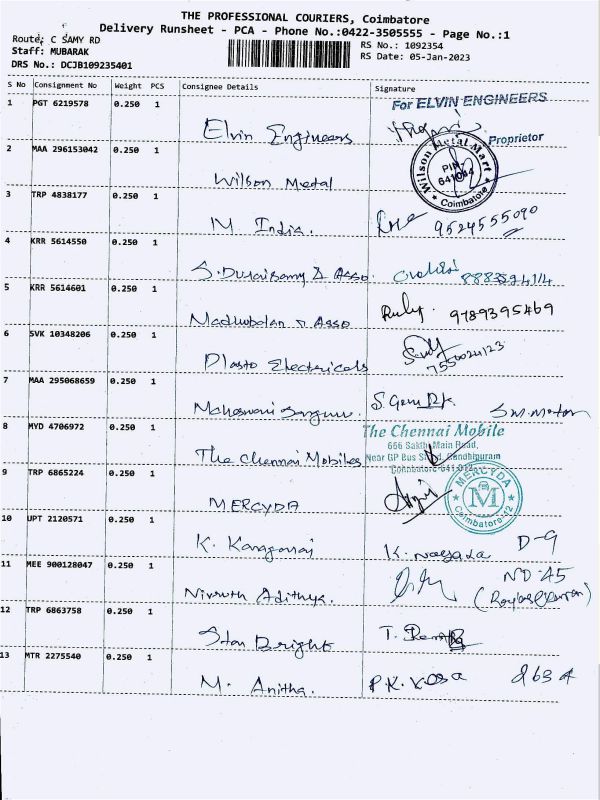 THE PROFESSIONAL COURIERS, Coimbatore
Delivery Runsheet - PCA - Phone No.:0422-3505555 - Page No.:1
Route: C SAMY RD
Staff: MUBARAK
DRS No.: DCJB109235401
RS No.: 1092354
RS Date: 05-Jan-2023
S No Consignment No Weight PCS Consignee Details Signature
1 PGT 6219578 0.250 1
Elvin Engineers
For ELVIN ENGINEERS
Proprietor
2 MAA 296153042 0.250 1
Wilson Metal
Wilson Metal Mart
PIN-
641044
Coimbatore
3 TRP 4838177 0.250 1
M. India.
9524555090
4 KRR 5614550 0.250 1
S. Duraisamy & Asso
8883594114
5 KRR 5614601 0.250 1
Madhubalan & Asso
9789395469
6 SVK 10348206 0.250 1
Plasto Electricals
7550024123
7 MAA 295068659 0.250 1
8 MYD 4706972 0.250 1
The Chennai Mobiles
The Chennai Mobile
666 Sakthi Main Road,
Near GP Bus Stand, Gandhipuram
Coimbatore-641 012
9 TRP 6865224 0.250 1
MERCYDA
MERCYDA
M
Coimbatore-12
10 UPT 2120571 0.250 1
K.
K.
D-9
11 MEE 900128047 0.250 1
Nivruth Adithya.
ND-45
12 TRP 6863758 0.250 1
Star Bright
T.
13 MTR 2275540 0.250 1
M. Anitha.
P.K.